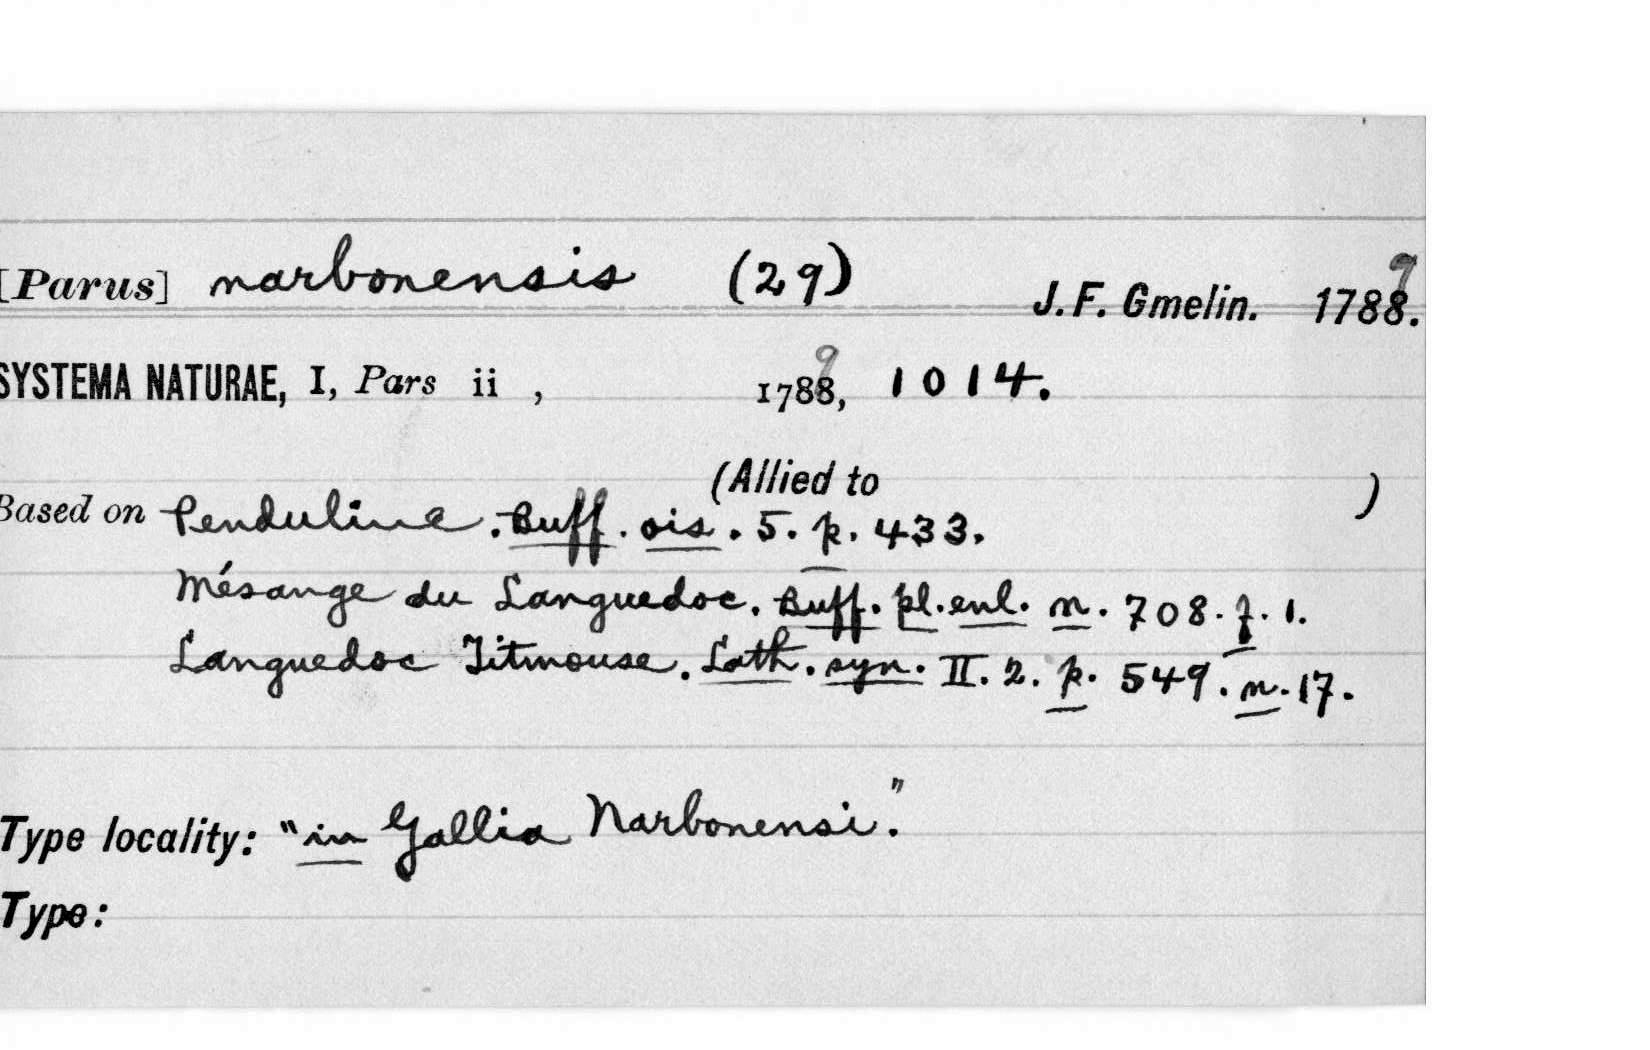 [Parus] narbonensis (29) J. F. Gmelin. 1788. 9
SYSTEMA NATURAE, I, Pars ii , 1788, 9 1014.
(Allied to )
Based on Penduline. Buff. ois. 5. p. 433.
Mésange du Languedoc. Buff. pl. enl. n. 708. f. 1.
Languedoc Titmouse. Lath. syn. II. 2. p. 549. n. 17.
Type locality: "in Gallia Narbonensi."
Type: